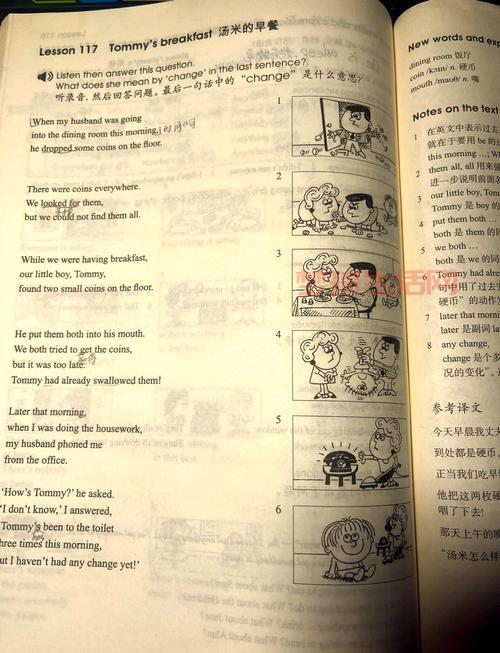 Lesson 117 Tommy's breakfast 汤米的早餐
Listen then answer this question.
What does she mean by 'change' in the last sentence?
听录音,然后回答问题。最后一句话中的“change”是什么意思?
1
When my husband was going
into the dining room this morning,
he dropped some coins on the floor.
2
There were coins everywhere.
We looked for them,
but we could not find them all.
3
While we were having breakfast,
our little boy, Tommy,
found two small coins on the floor.
4
He put them both into his mouth.
We both tried to get the coins,
but it was too late.
Tommy had already swallowed them!
5
Later that morning,
when I was doing the housework,
my husband phoned me
from the office.
6
'How's Tommy?' he asked.
'I don't know,' I answered,
Tommy's been to the toilet
three times this morning,
but I haven't had any change yet!'
New words and exp
dining room 饭厅
coin /kɔin/ n. 硬币
mouth /mauθ/ n. 嘴
Notes on the text
1 在英文中表示过去
就在于要用 be 的过
this morning
2 them all, all 用来强
进一步说明前面名
3 our little boy, Tommy
Tommy 是 boy 的
4 put them both
both 是 them 的同
5 we both
both 是 we 的同
6 Tommy had alre
句中用了过去完
硬币”的动作
7 later that morni
later 是副词
8 any change,
change 是个多
况的变化”。
参考译文
今天早晨我丈夫
到处都是硬币。
正当我们吃早
他把这两枚硬
咽了下去!
那天上午的晚
“汤米怎么样